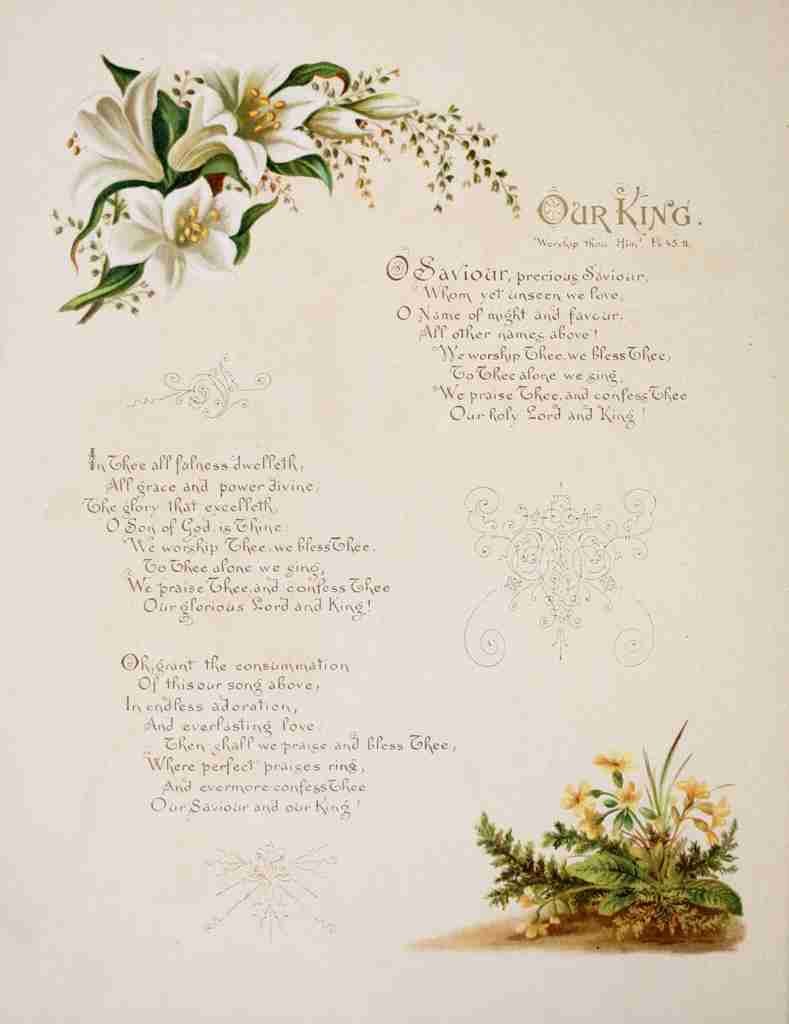 OUR KING.
"Worship thou Him." Ps. 45. 11.
O Saviour, precious Saviour,
Whom yet unseen we love,
O Name of might and favour,
All other names above!
We worship Thee, we bless Thee,
To Thee alone we sing,
We praise Thee, and confess Thee
Our holy Lord and King!
In Thee all fulness dwelleth,
All grace and power divine;
The glory that excelleth,
O Son of God, is Thine:
We worship Thee, we bless Thee,
To Thee alone we sing,
We praise Thee, and confess Thee
Our glorious Lord and King!
Oh, grant the consummation
Of this our song above,
In endless adoration,
And everlasting love:
Then shall we praise and bless Thee,
Where perfect praises ring,
And evermore confess Thee
Our Saviour and our King!